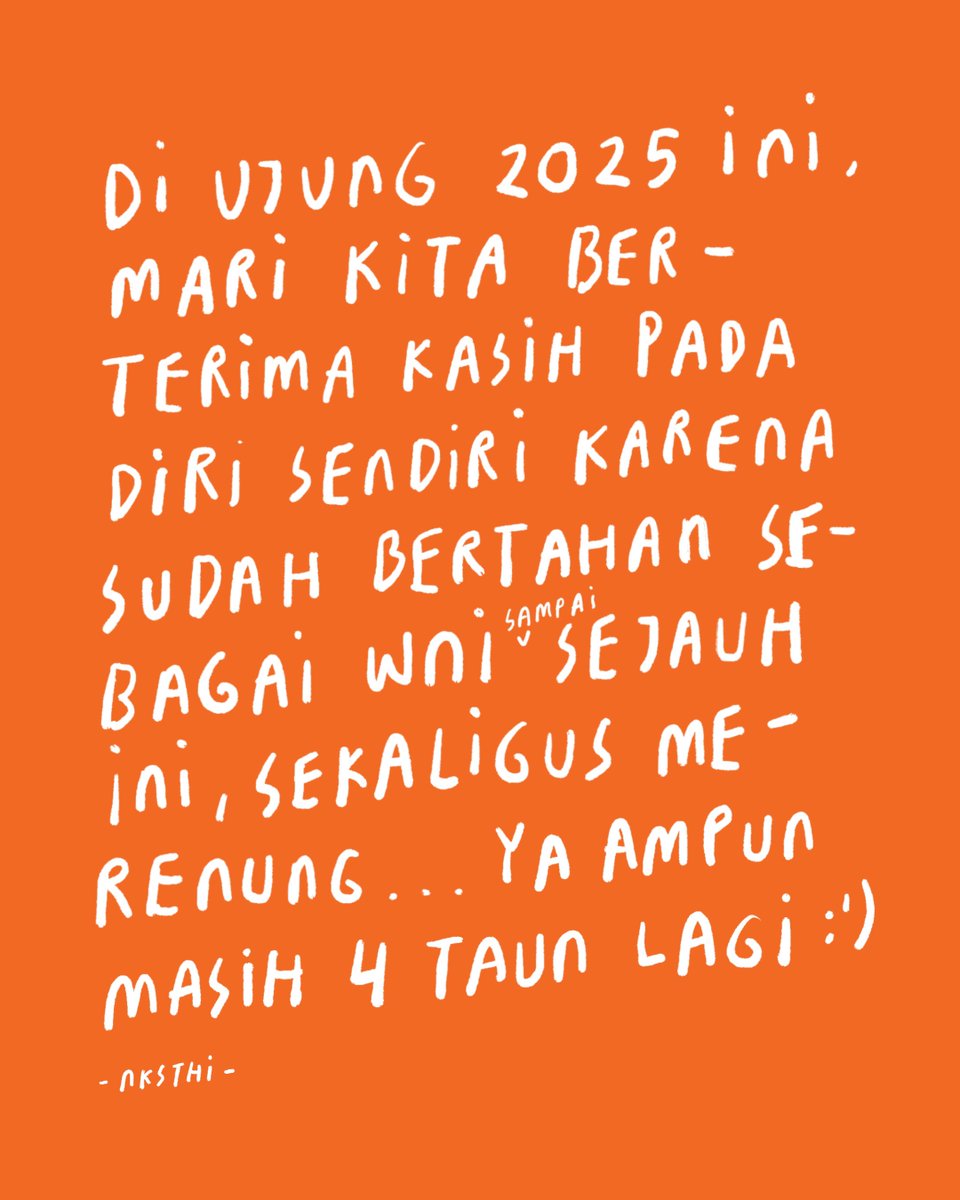 Di UJUNG 2025 ini,
MARi KiTA BER-
TERiMA KASiH PADA
DiRi SENDiRi KARENA
SUDAH BERTAHAN SE-
BAGAi WNi SAMPAi SEJAUH
ini, SEKALiGUS ME-
RENUNG... YA AMPUN
MASiH 4 TAUN LAGi :')
- NKSTHi -